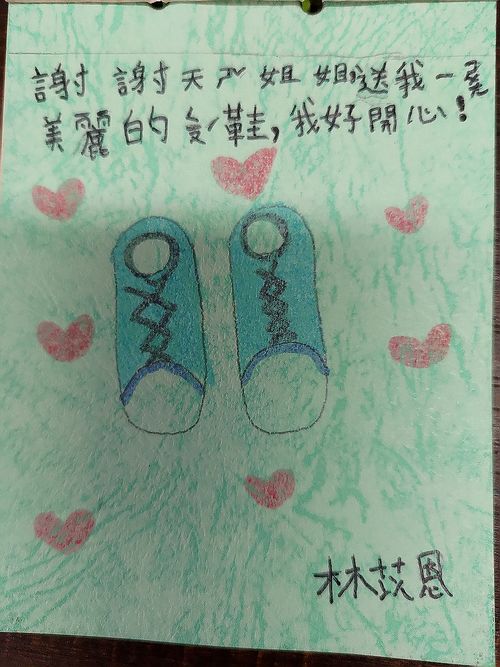 謝謝天ㄕˇ姐姐送我一
美麗的 鞋,我好開心!
林苡恩